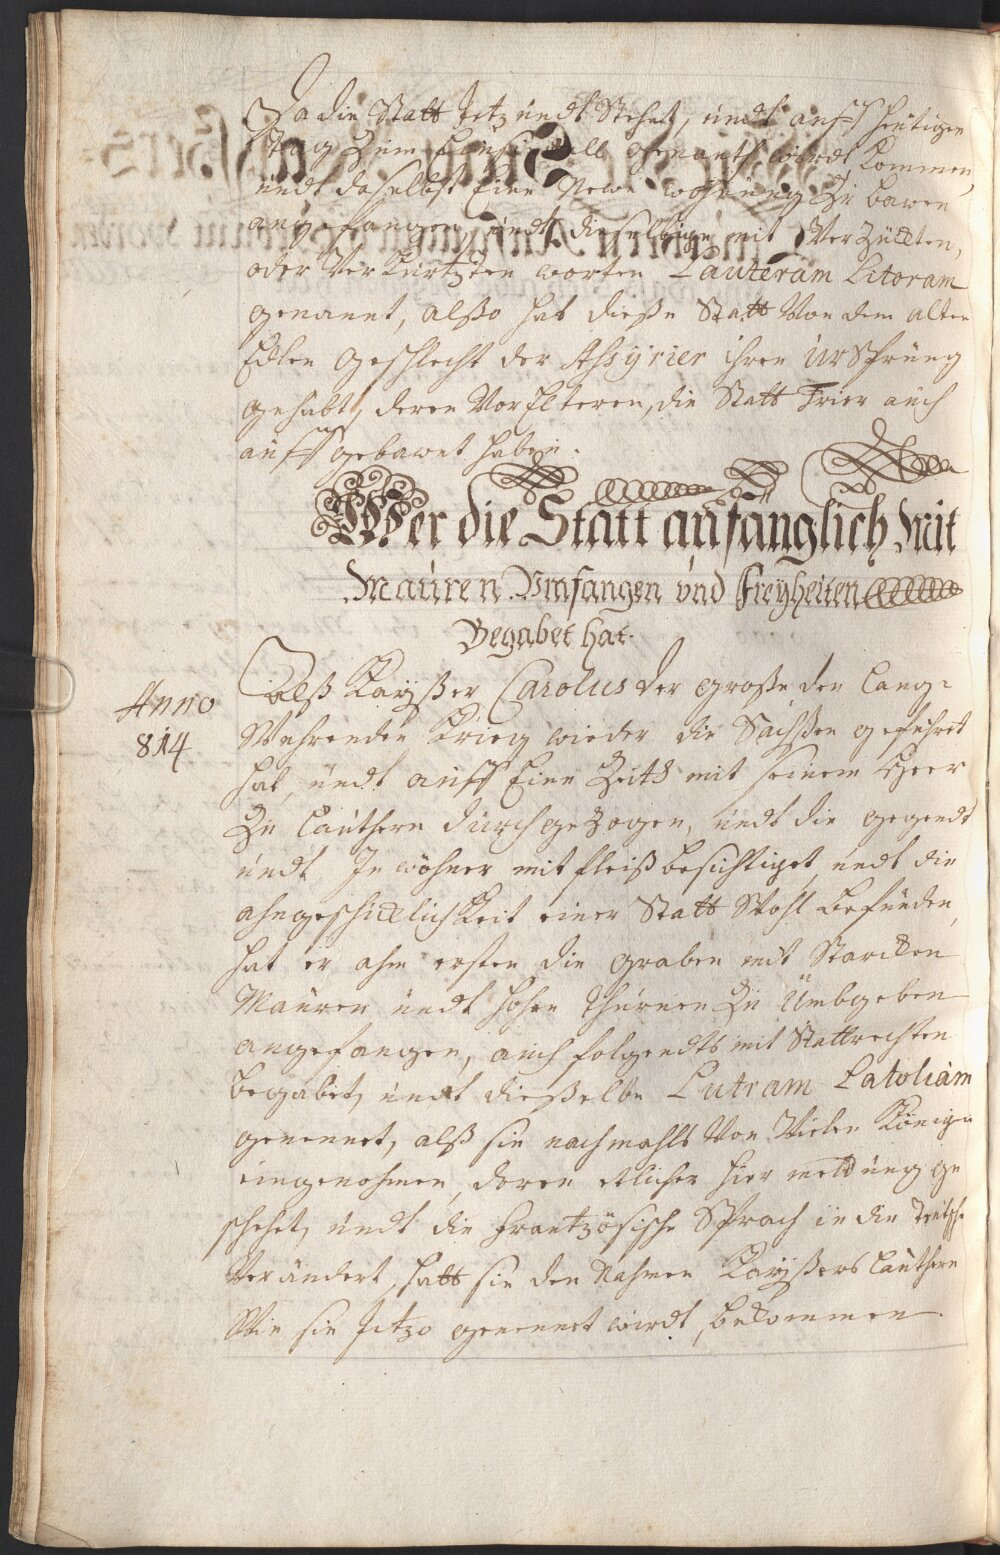 Da die Statt Jetzundt Stehet, undt auff heutigen
Tag Zum genant wirdt kommen,
undt daselbst Eine Newe wohnung Zu bawen
angefangen, undt dieselbige mit Verzückten,
oder Verkürtzten worten Lauteram Litoram
genannt, alßo hat dieße Statt Von dem alten
Edlen Geschlecht der Assyrier ihren Ursprung
gehabt, deren VorElteren, die Statt Trier auch
auff gebawet haben.
Wer die Statt anfänglich Mit
Mauren Vmfangen und Freyheiten
Begabet hat.
Anno
814
Alß Kayßer Carolus der große den Lang-
Wehrenden Krieg wieder die Sachßen geführet
hat, undt auff Eine Zeith mit seinem Heer
Zu Lauthern durchgezogen, undt die gegendt
undt Inwohner mit fleiß besichtiget, undt die
ahngeschicklichkeit einer Statt Wohl befunden,
hat er ahm ersten die graben mit Starcken
Mauren undt hohen Thürnen Zu Umbgeben
angefangen, auch folgendts mit Stattrechten
begabet, undt dießelbe Lutram Catoliam
genennet, alß sie nachmahls Von Vielen Königen
eingenohmen, deren etlicher hier meldung ge
schehet, undt die Frantzösische Sprach in die Teutsche
Verändert, hatt sie den Nahmen Kayßers Lauthern
Wie sie Jetzo genennet wirdt, bekommen.